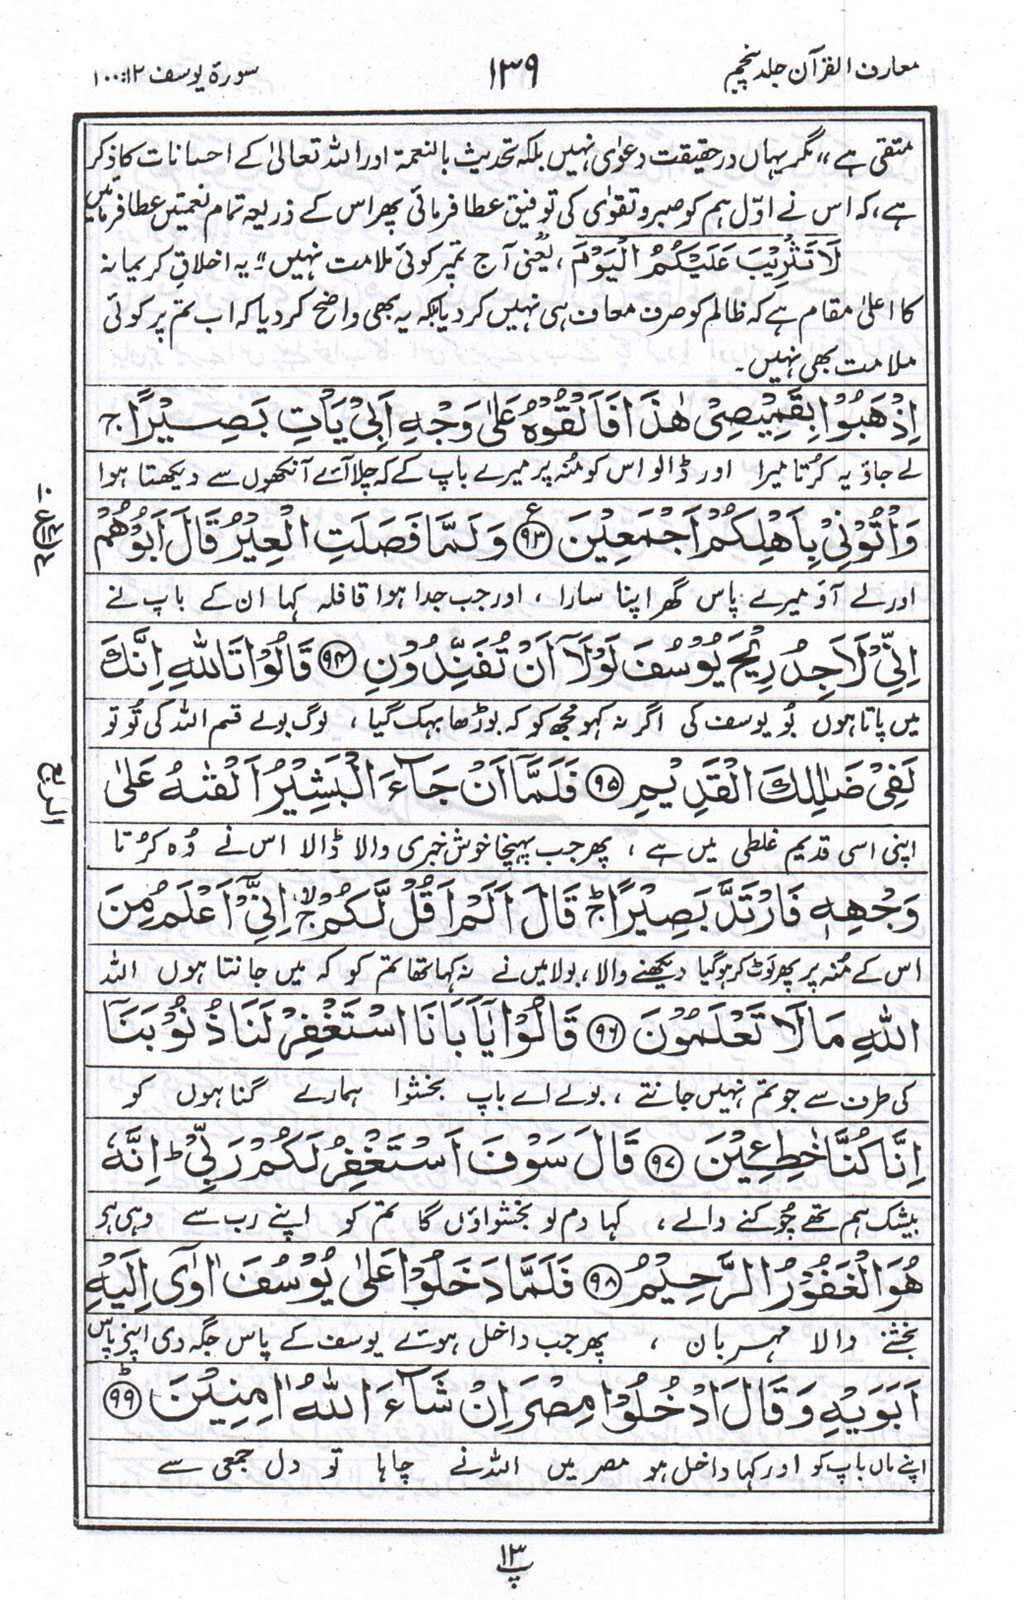 معارف القرآن جلد پنجم
۱۳۹
سورۃ یوسف ۱۲:۱۰۰
متقی ہے“ مگر یہاں درحقیقت دعوٰی نہیں بلکہ تحدیث بالنعمۃ اور اللہ تعالیٰ کے احسانات کا ذکر
ہے، کہ اس نے اوّل ہم کو صبر و تقوٰی کی توفیق عطا فرمائی پھر اس کے ذریعہ تمام نعمتیں عطا فرمائیں
لَا تَثْرِيْبَ عَلَيْكُمُ الْيَوْمَ ، یعنی آج تم پر کوئی ملامت نہیں“ یہ اخلاقِ کریمانہ
کا اعلیٰ مقام ہے کہ ظالم کو صرف معاف ہی نہیں کر دیا بلکہ یہ بھی واضح کر دیا کہ اب تم پر کوئی
ملامت بھی نہیں۔
اِذْهَبُوْا بِقَمِيْصِيْ هٰذَا فَاَلْقُوْهُ عَلٰى وَجْهِ اَبِيْ يَاْتِ بَصِيْرًا ج
لے جاؤ یہ کرُتا میرا اور ڈالو اس کو منہ پر میرے باپ کے کہ چلا آئے آنکھوں سے دیکھتا ہوا
وَاْتُوْنِيْ بِاَهْلِكُمْ اَجْمَعِيْنَ ﴿۹۳﴾ ع وَلَمَّا فَصَلَتِ الْعِيْرُ قَالَ اَبُوْهُمْ
اور لے آؤ میرے پاس گھر اپنا سارا ، اور جب جدا ہوا قافلہ کہا ان کے باپ نے
اِنِّيْ لَاَجِدُ رِيْحَ يُوْسُفَ لَوْلَآ اَنْ تُفَنِّدُوْنِ ﴿۹۴﴾ قَالُوْا تَاللّٰهِ اِنَّكَ
میں پاتا ہوں بُو یوسف کی اگر نہ کہو مجھ کو کہ بوڑھا بہک گیا ، لوگ بولے قسم اللہ کی تُو تو
لَفِيْ ضَلٰلِكَ الْقَدِيْمِ ﴿۹۵﴾ فَلَمَّآ اَنْ جَآءَ الْبَشِيْرُ اَلْقٰىهُ عَلٰى
اپنی اسی قدیم غلطی میں ہے ، پھر جب پہنچا خوش خبری والا ڈالا اس نے وُہ کرُتا
وَجْهِهٖ فَارْتَدَّ بَصِيْرًا ج قَالَ اَلَمْ اَقُلْ لَّكُمْ ج لا اِنِّيْٓ اَعْلَمُ مِنَ
اس کے مُنہ پر پھر لَوٹ کر ہو گیا دیکھنے والا، بولا میں نے نہ کہا تھا تم کو کہ میں جانتا ہوں اللہ
اللّٰهِ مَا لَا تَعْلَمُوْنَ ﴿۹۶﴾ قَالُوْا يٰٓاَبَانَا اسْتَغْفِرْ لَنَا ذُنُوْبَنَآ
کی طرف سے جو تم نہیں جانتے ، بولے اے باپ بخشوا ہمارے گناہوں کو
اِنَّا كُنَّا خٰطِـِٕيْنَ ﴿۹۷﴾ قَالَ سَوْفَ اَسْتَغْفِرُ لَكُمْ رَبِّيْ ط اِنَّهٗ
بیشک ہم تھے چُوکنے والے ، کہا دم لو بخشواؤں گا تم کو اپنے رب سے وہی ہو
هُوَ الْغَفُوْرُ الرَّحِيْمُ ﴿۹۸﴾ فَلَمَّا دَخَلُوْا عَلٰى يُوْسُفَ اٰوٰٓى اِلَيْهِ
بخشنے والا مہربان ، پھر جب داخل ہوئے یوسف کے پاس جگہ دی اپنے پاس
اَبَوَيْهِ وَقَالَ ادْخُلُوْا مِصْرَ اِنْ شَآءَ اللّٰهُ اٰمِنِيْنَ ﴿۹۹﴾ ط
اپنے ماں باپ کو اور کہا داخل ہو مصر میں اللہ نے چاہا تو دل جمعی سے
۱۳